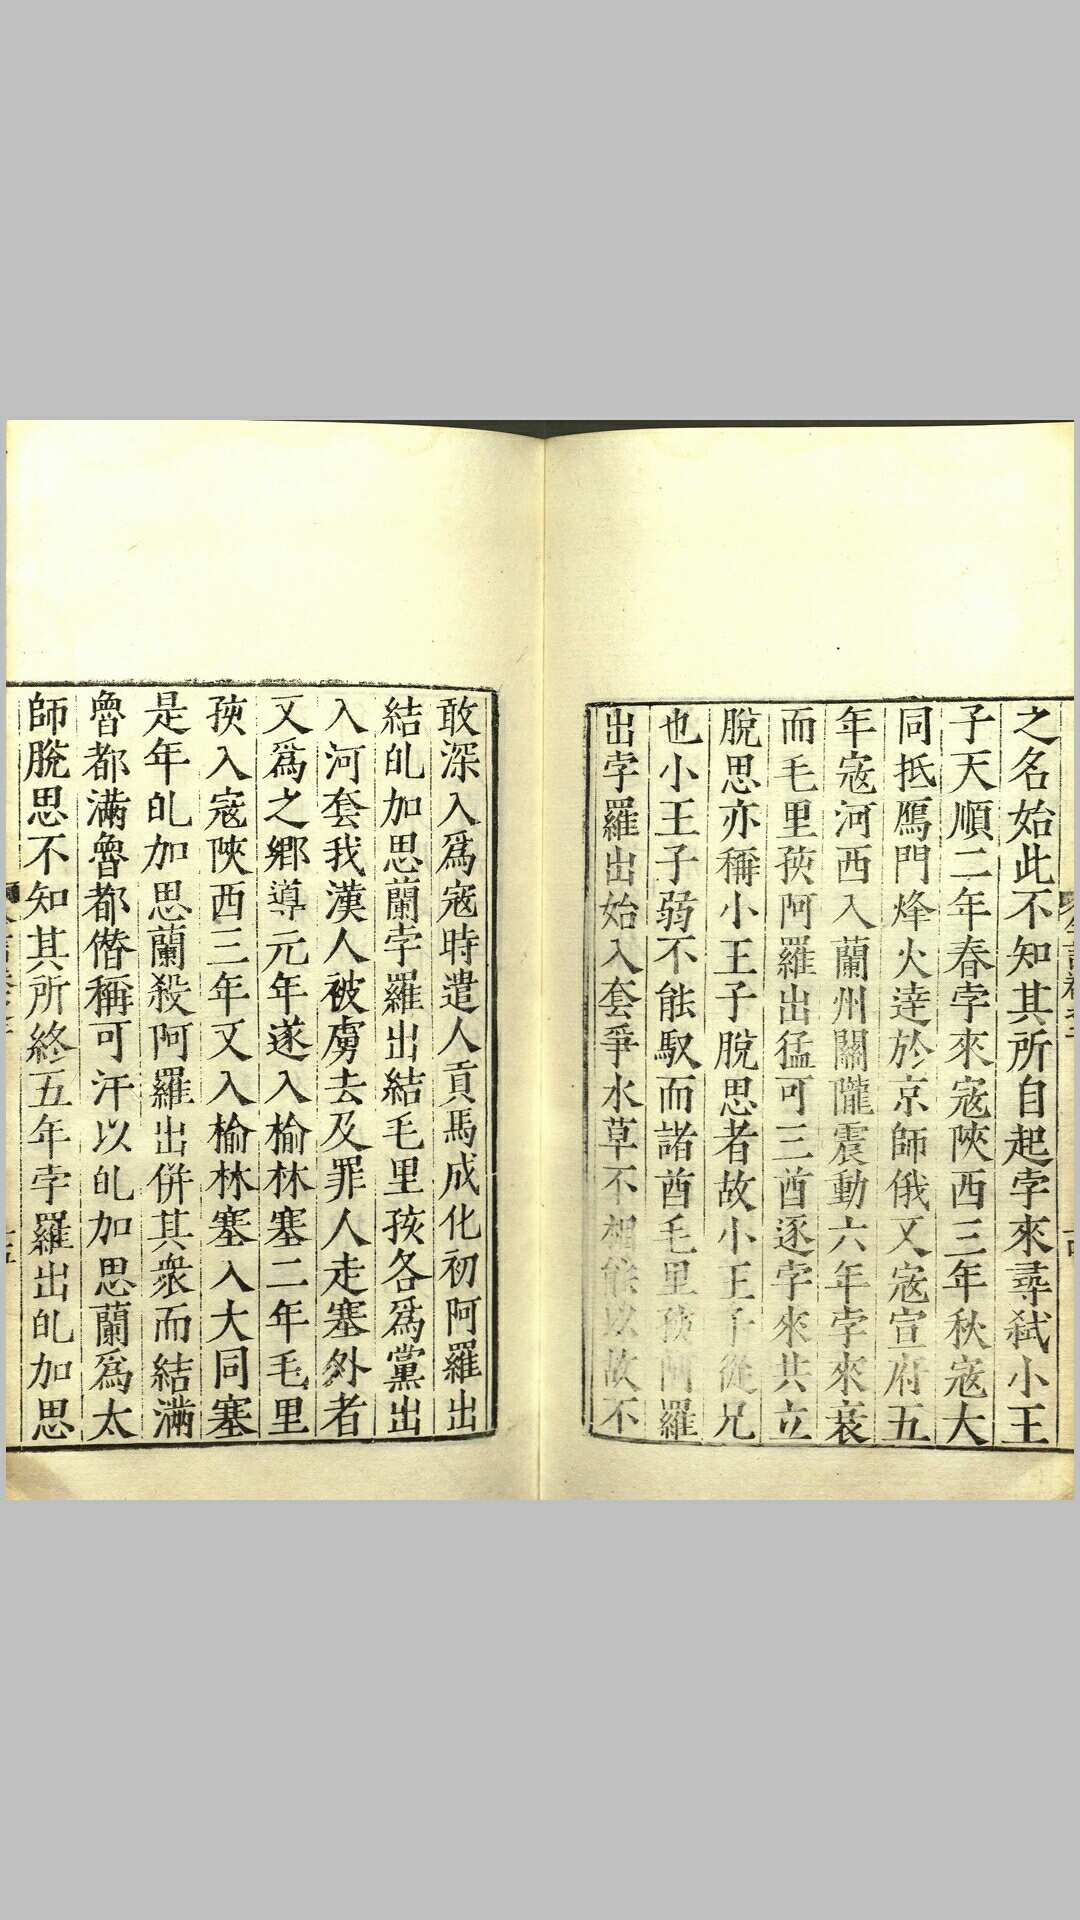 之名始此不知其所自起孛來尋弑小王
子天順二年春孛來寇陝西三年秋寇大
同抵鴈門烽火達於京師俄又寇宣府五
年寇河西入蘭州關隴震動六年孛來衰
而毛里孩阿羅出猛可三酋逐孛來共立
脫思亦稱小王子脫思者故小王子從兄
也小王子弱不能馭而諸酋毛里孩阿羅
出孛羅出始入套爭水草不相能以故不
敢深入爲寇時遣人貢馬成化初阿羅出
結癿加思蘭孛羅出結毛里孩各爲黨出
入河套我漢人被虜去及罪人走塞外者
又爲之鄉導元年遂入榆林塞二年毛里
孩入寇陝西三年又入榆林塞入大同塞
是年癿加思蘭殺阿羅出併其衆而結滿
魯都滿魯都僭稱可汗以癿加思蘭爲太
師脫思不知其所終五年孛羅出癿加思